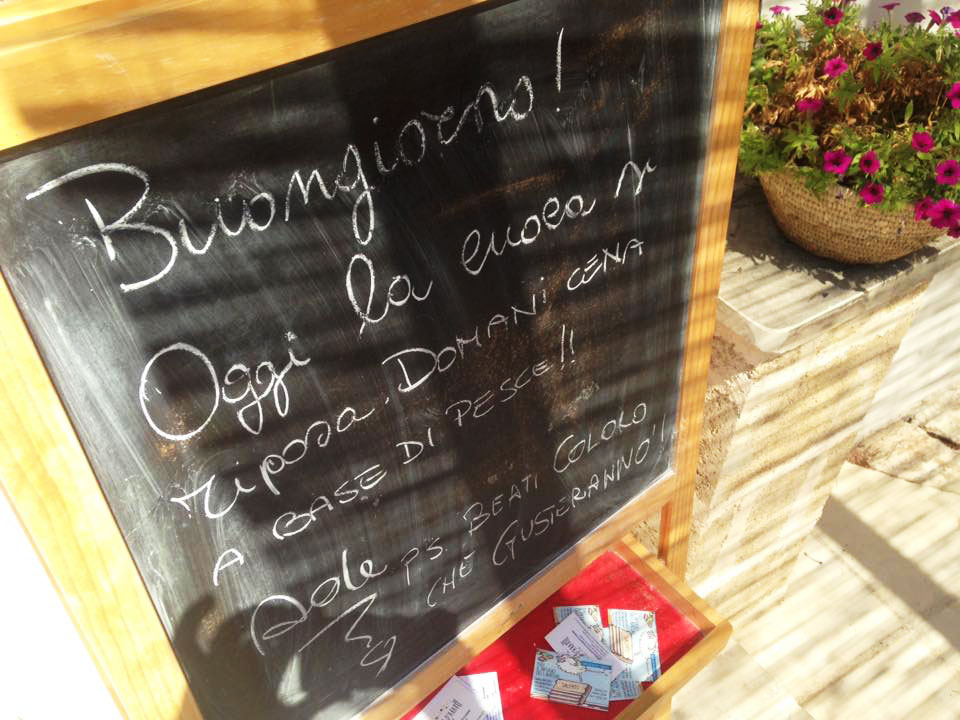 Buongiorno!
Oggi la cuoca si
riposa. DOMANI CENA
A BASE DI PESCE!!
P.S. BEATI COLORO
CHE GUSTERANNO!!